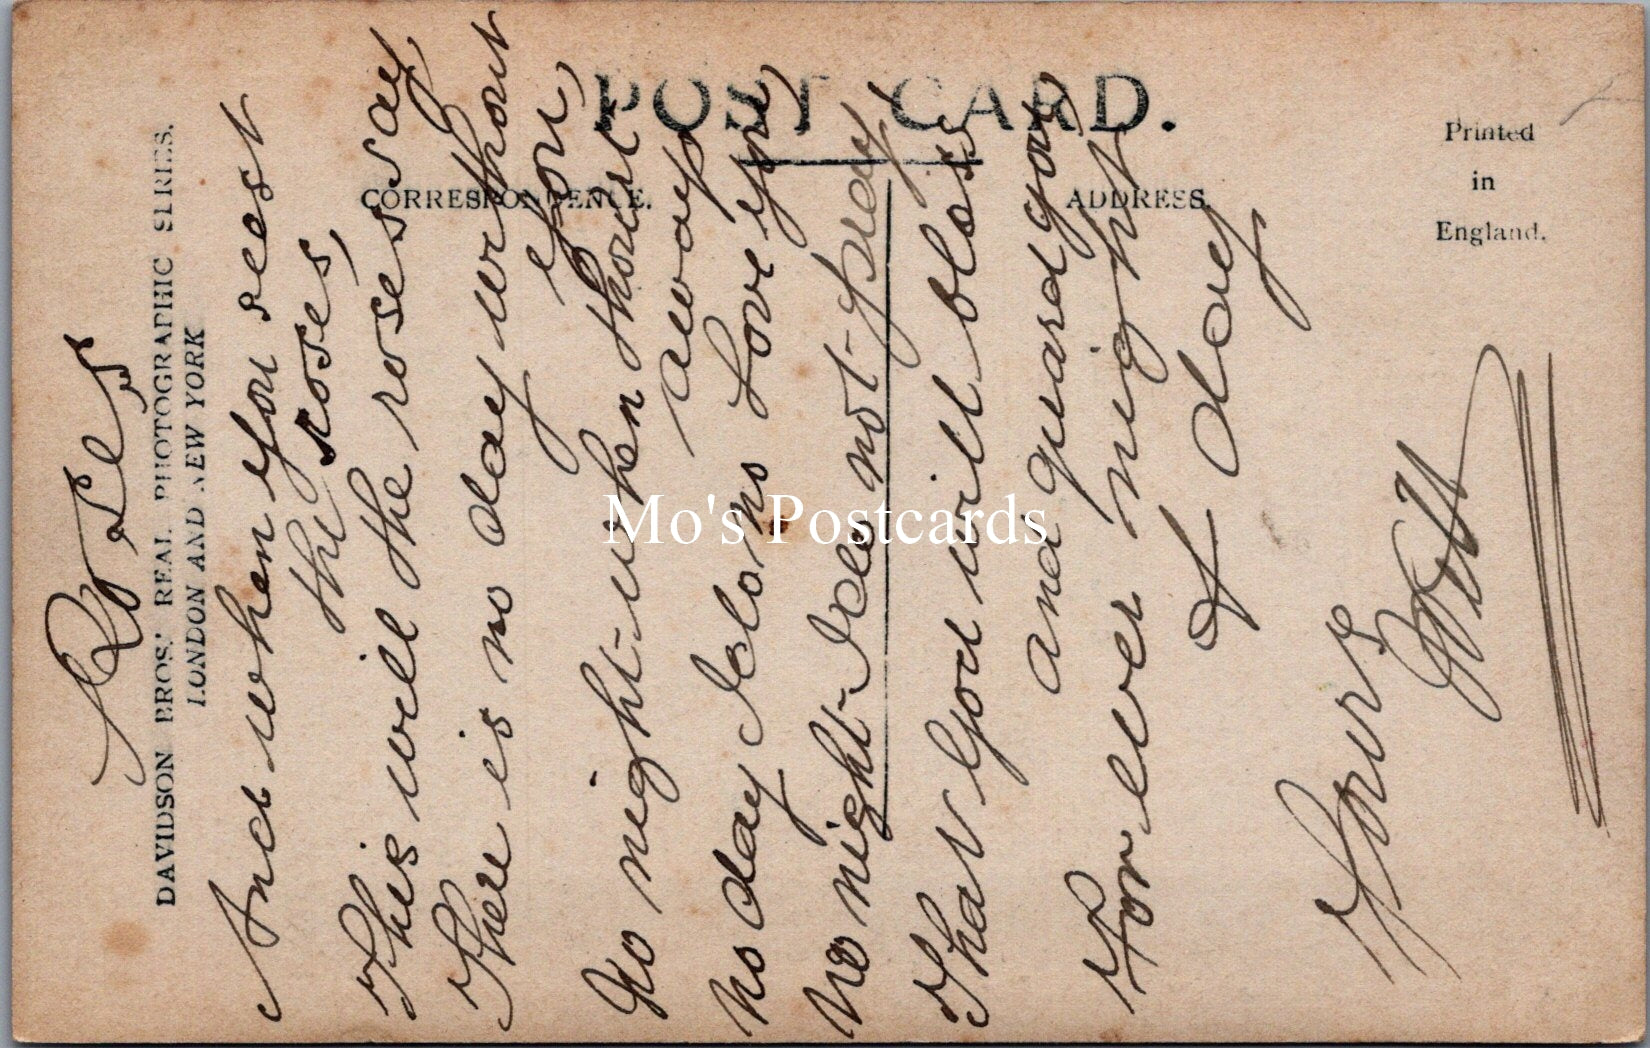 POST CARD.
CORRESPONDENCE.
ADDRESS.
Printed
in
England.
DAVIDSON BROS.' REAL PHOTOGRAPHIC SERIES.
LONDON AND NEW YORK
Roses
And when you rest
the roses,
This will the roses say
There is no day without
you
No night when thou art
away
No day I do no Love you
No night I do not pray
That God will bless
and guard you
For ever night
& day
Yours
Mo's Postcards